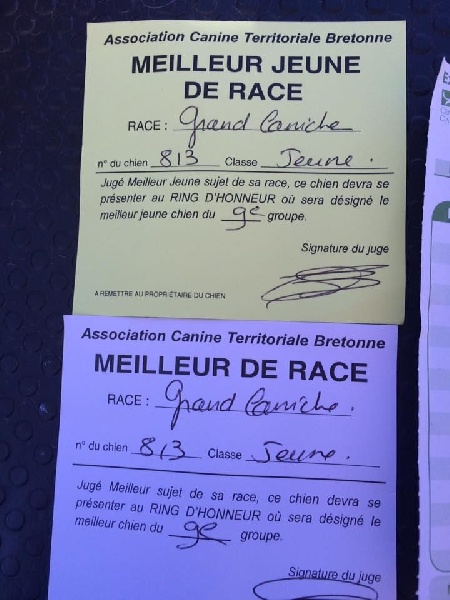 Association Canine Territoriale Bretonne
MEILLEUR JEUNE
DE RACE
RACE : Grand Caniche
n° du chien 813 Classe Jeune.
Jugé Meilleur Jeune sujet de sa race, ce chien devra se
présenter au RING D'HONNEUR où sera désigné le
meilleur jeune chien du 9e groupe.
Signature du juge
A REMETTRE AU PROPRIÉTAIRE DU CHIEN
Association Canine Territoriale Bretonne
MEILLEUR DE RACE
RACE : Grand Caniche.
n° du chien 813 Classe Jeune.
Jugé Meilleur sujet de sa race, ce chien devra se
présenter au RING D'HONNEUR où sera désigné le
meilleur chien du 9e groupe.
Signature du juge